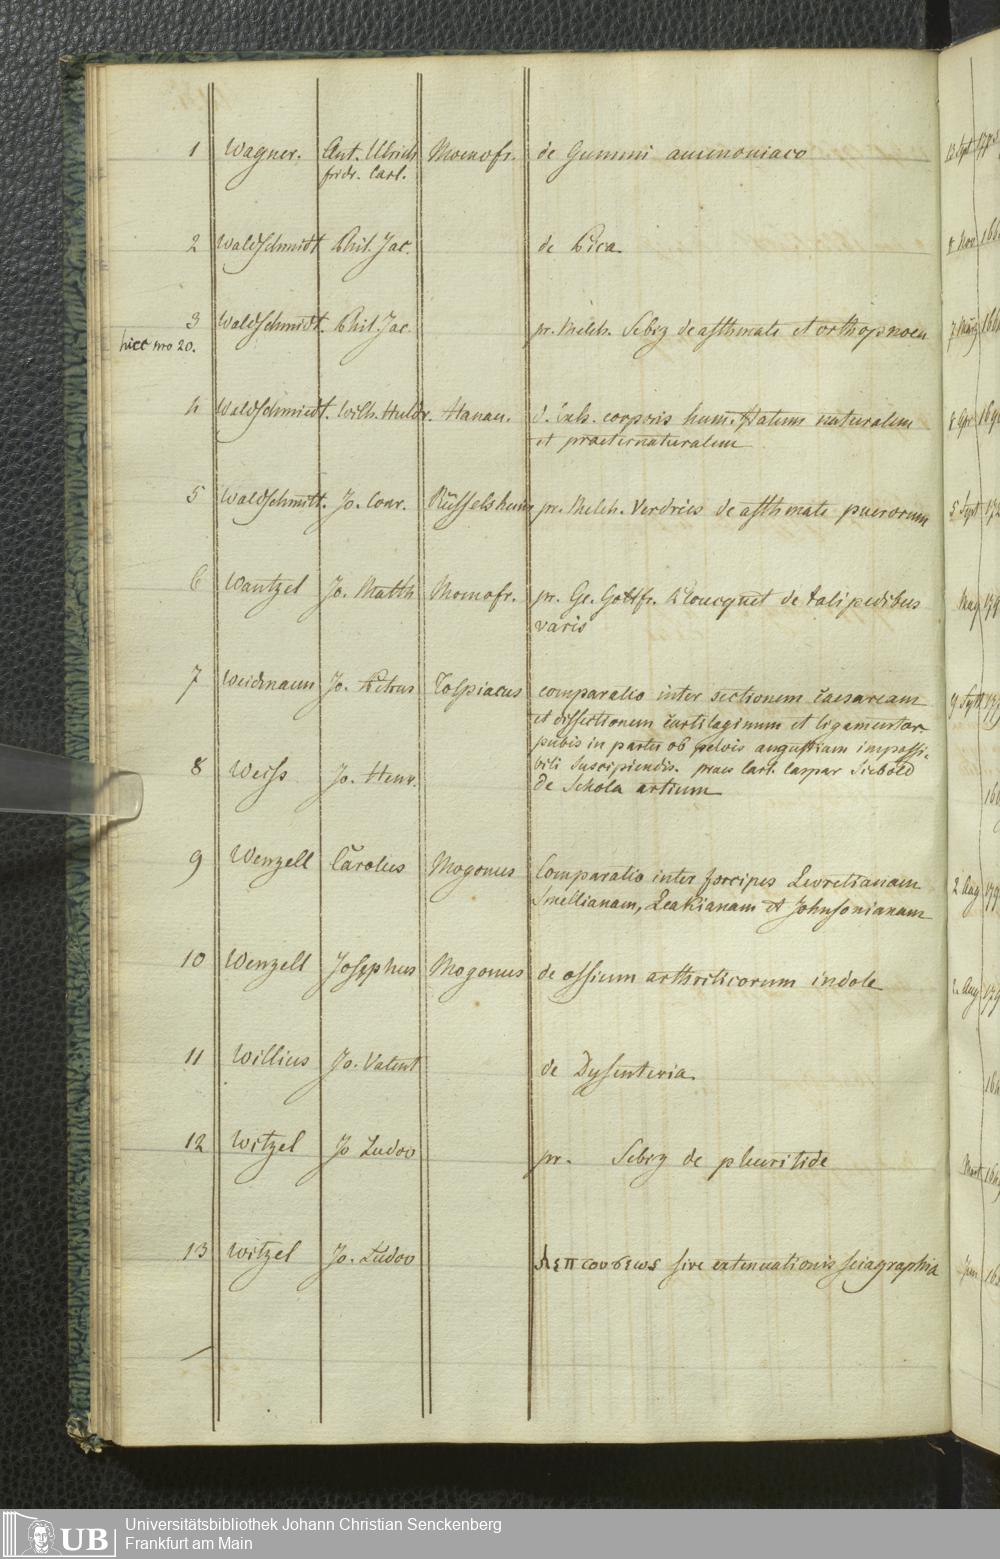 1 Wagner. Ant. Ulrich Moenofr. de Gummi ammoniaco 12 Sept
fridr. Carl.
2 Waldschmidt Phil. Jac. de Pica 8 Nov
3 Waldschmidt. Phil. Jac pr. Melch. Sebiz de asthmate et orthopnoea 7 März
hicc nro 20.
4 Waldschmiedt. Wilh. Huldr. Hanau. corporis hum. statum naturalem
et praeternaturalem
5 Waldschmitt. Jo. Conr. Rüsselsheim pr. Melch. Verdries de asthmate puerorum 5 Sept
6 Wantzel Jo. Matth Moenofr. pr. Ge. Gottfr. Ploucquet de talipedibus May
varis
7 Weidmann Jo. Petrus Tolpiacus comparatio inter sectionem caesaream
et dissectionem cartilaginum et ligamentor
pubis in partu ob pelvis angustiam impossi-
bili suscipiendis. praes Carl. Caspar Siebold
8 Weiss Jo. Henr. de Schola artium
9 Wenzell Carolus Mogonus Comparatio inter forcipes Levretianam 2 Aug
Smellianam, Leakianam et Johnsonianam
10 Wenzell Josephus Mogonus de ossium arthriticorum indole Aug
11 Willius Jo. Valent de Dysenteria
12 Witzel Jo Ludov pr. Sebiz de pleuritide Mart
13 Witzel Jo. Ludov sive extenuationis sciagraphia
UB
Universitätsbibliothek Johann Christian Senckenberg
Frankfurt am Main